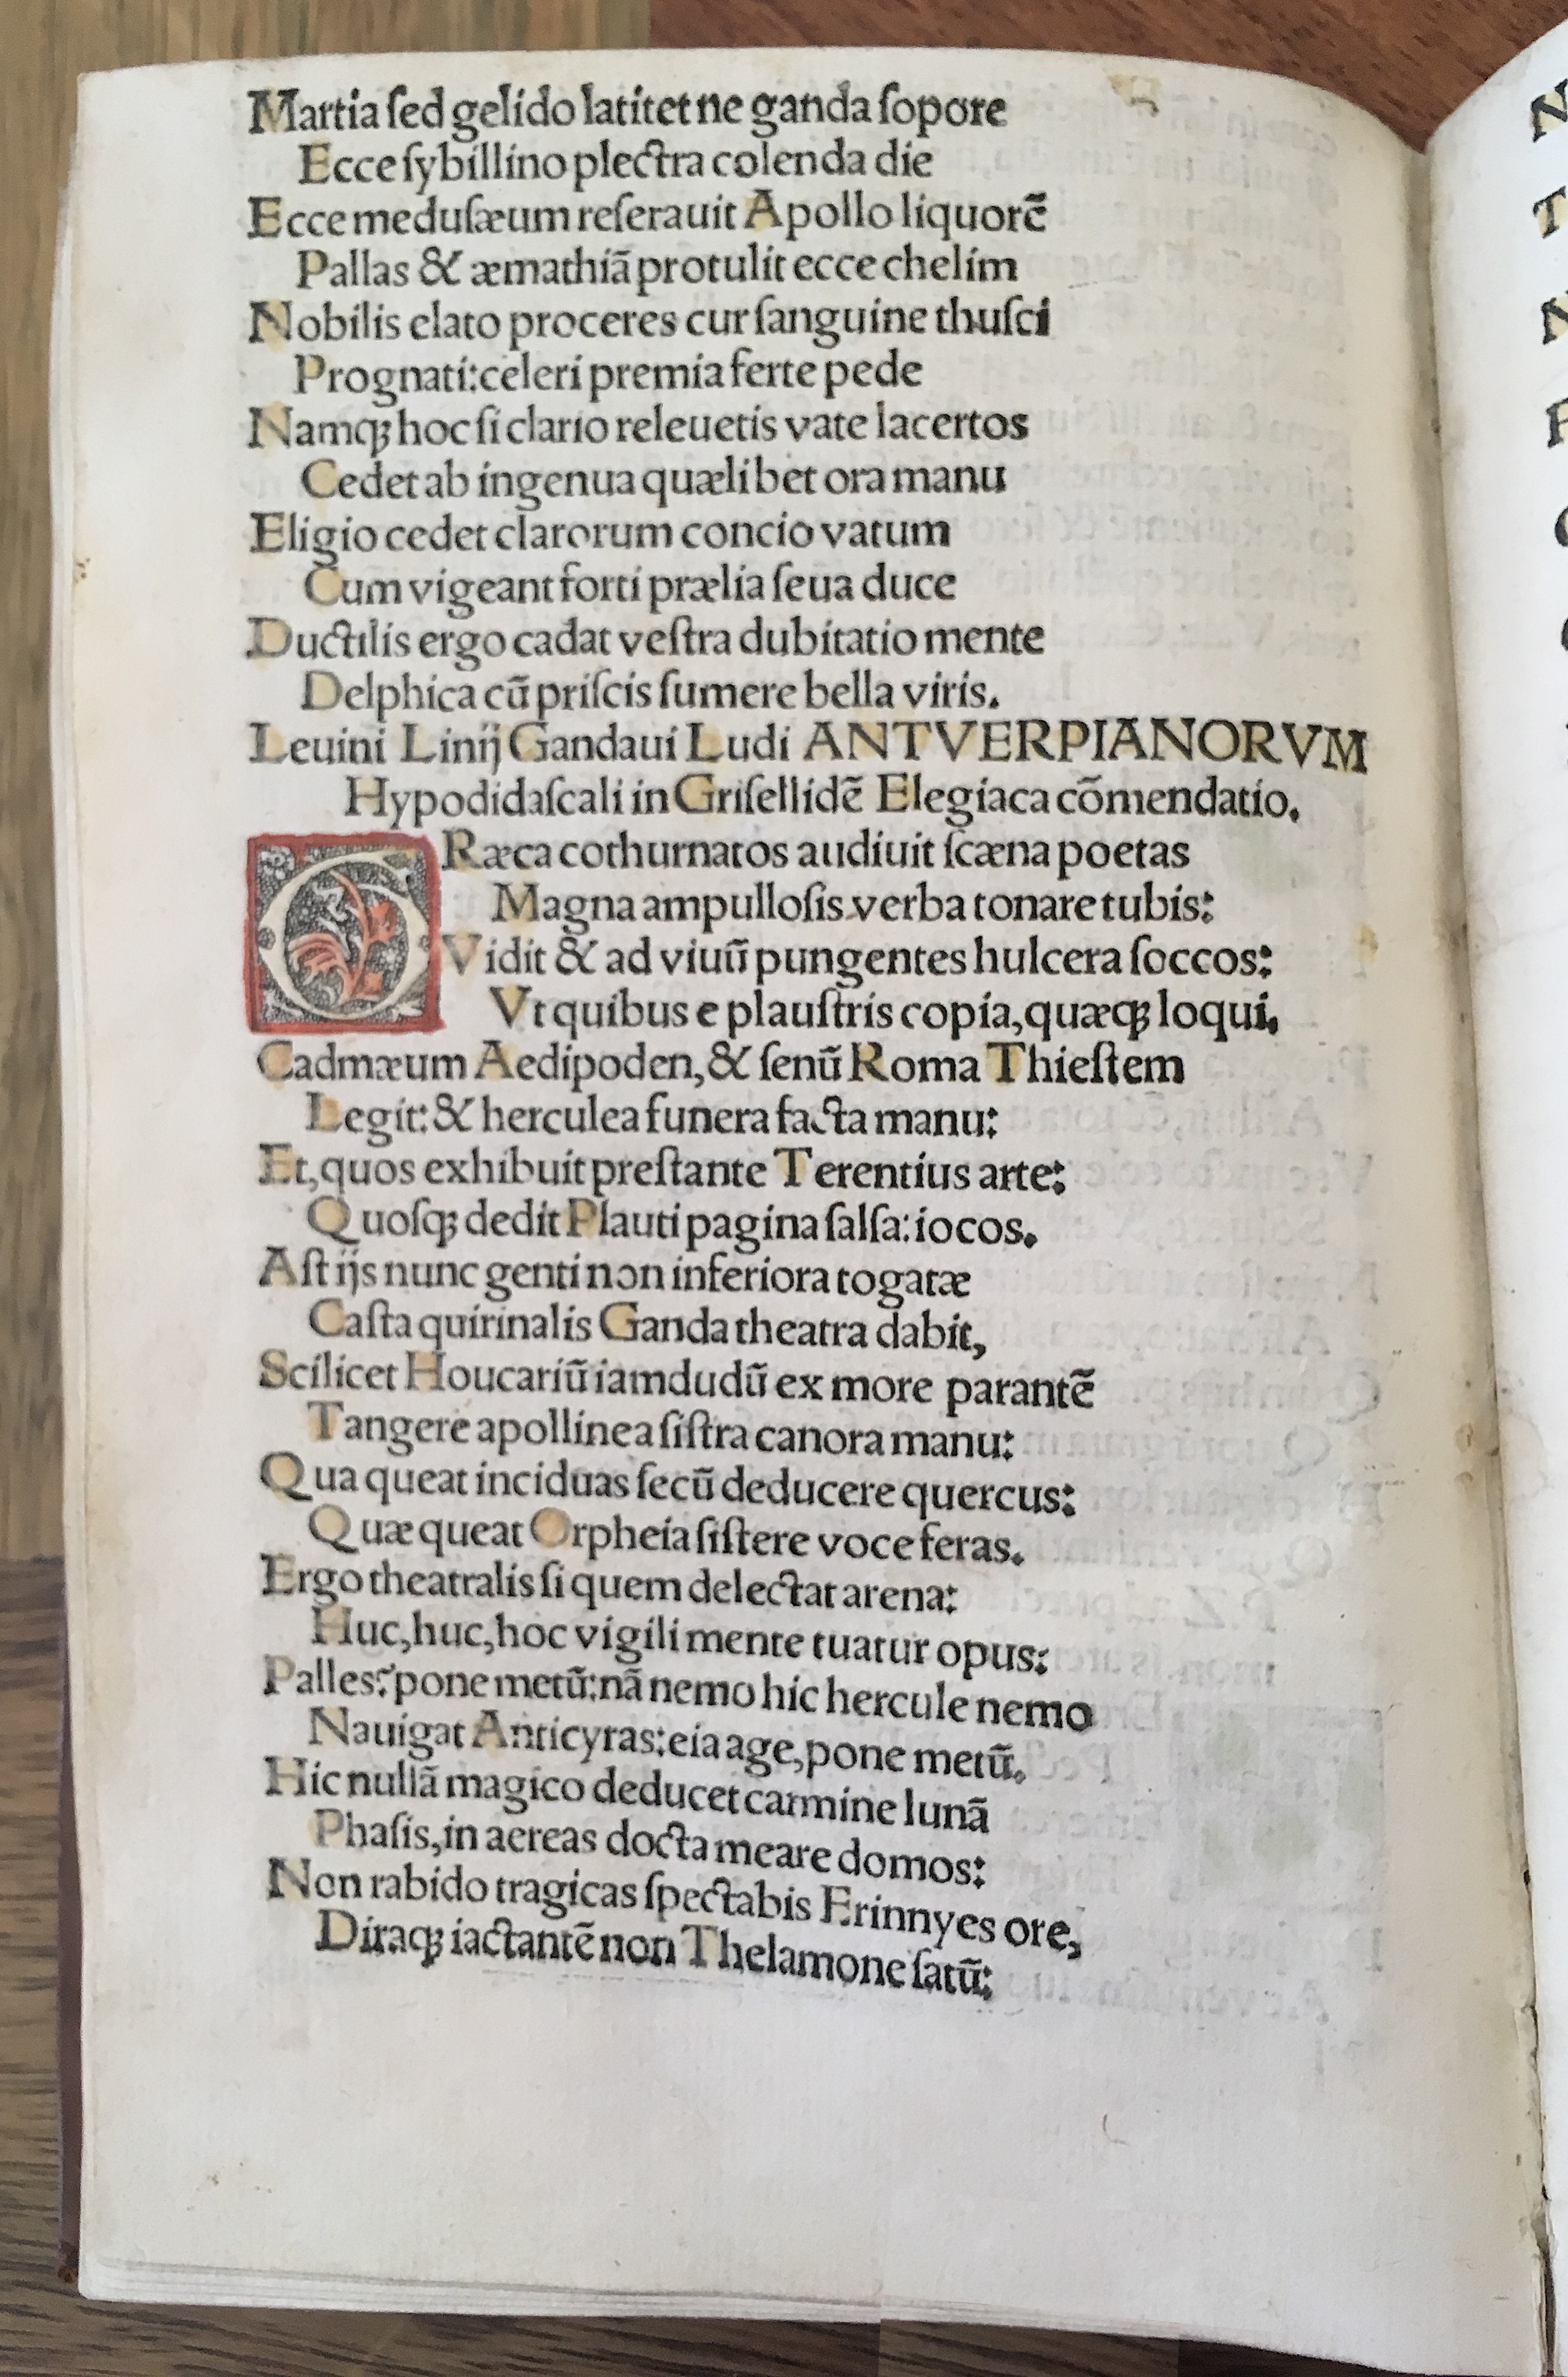 Martia ſed gelido latitet ne ganda ſopore
Ecce ſybillino plectra colenda die
Ecce meduſæum reſerauit Apollo liquorẽ
Pallas & æmathiã protulit ecce chelim
Nobilis elato proceres cur ſanguine thuſci
Prognati:celeri premia ferte pede
Namqꝫ hoc ſi clario releuetis vate lacertos
Cedet ab ingenua quælibet ora manu
Eligio cedet clarorum concio vatum
Cum vigeant forti prælia ſeua duce
Ductilis ergo cadat veſtra dubitatio mente
Delphica cũ priſcis ſumere bella viris.
Leuini Linij Gandaui Ludi ANTVERPIANORVM
Hypodidaſcali in Griſellidẽ Elegiaca cõmendatio.
GRæca cothurnatos audiuit ſcæna poetas
Magna ampulloſis verba tonare tubis:
Vidit & ad viuũ pungentes hulcera ſoccos:
Vt quibus e plauſtris copia,quæqꝫ loqui.
Cadmæum Aedipoden,& ſenũ Roma Thieſtem
Legit:& herculea funera facta manu:
Et,quos exhibuit preſtante Terentius arte:
Quoſqꝫ dedit Plauti pagina ſalſa:iocos.
Aſt ijs nunc genti non inferiora togatæ
Caſta quirinalis Ganda theatra dabit,
Scilicet Houcariũ iamdudũ ex more parantẽ
Tangere apollinea ſiſtra canora manu:
Qua queat inciduas ſecũ deducere quercus:
Quæ queat Orpheia ſiſtere voce feras.
Ergo theatralis ſi quem delectat arena:
Huc,huc,hoc vigili mente tuatur opus:
Palles? pone metũ:nã nemo hic hercule nemo
Nauigat Anticyras:eia age,pone metũ.
Hic nullã magico deducet carmine lunã
Phaſis,in aereas docta meare domos:
Non rabido tragicas ſpectabis Erinnyes ore,
Diraqꝫ iactantẽ non Thelamone ſatũ: